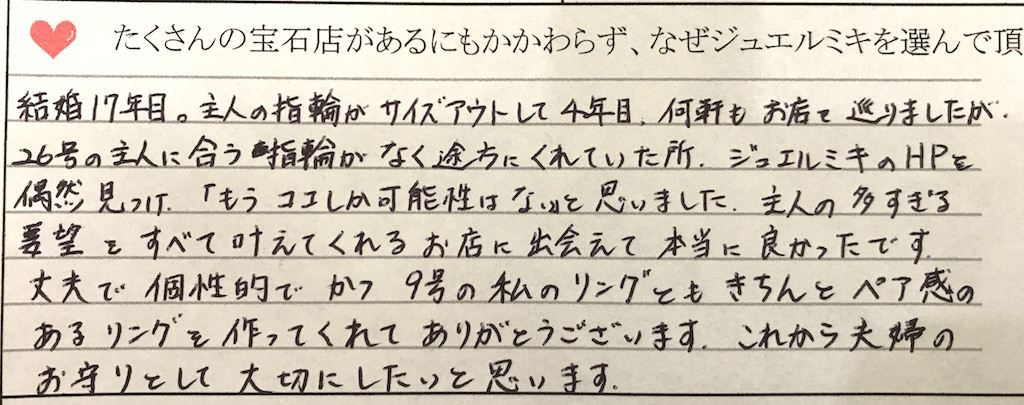 たくさんの宝石店があるにもかかわらず、なぜジュエルミキを選んで頂
結婚17年目。主人の指輪がサイズアウトして4年目、何軒もお店を巡りましたが、
26号の主人に合う指輪がなく途方にくれていた所、ジュエルミキのHPを
偶然見つけ、「もうココしか可能性はない」と思いました。主人の多すぎる
要望をすべて叶えてくれるお店に出会えて本当に良かったです。
丈夫で個性的でかつ9号の私のリングともきちんとペア感の
あるリングを作ってくれてありがとうございます。これから夫婦の
お守りとして大切にしたいと思います。